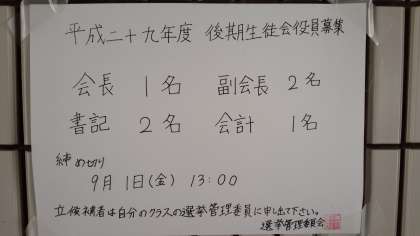 平成二十九年度 後期生徒会役員募集
会長 1名 副会長 2名
書記 2名 会計 1名
締め切り
9月1日(金) 13:00
立候補者は自分のクラスの選挙管理委員に申し出て下さい。
選挙管理委員会